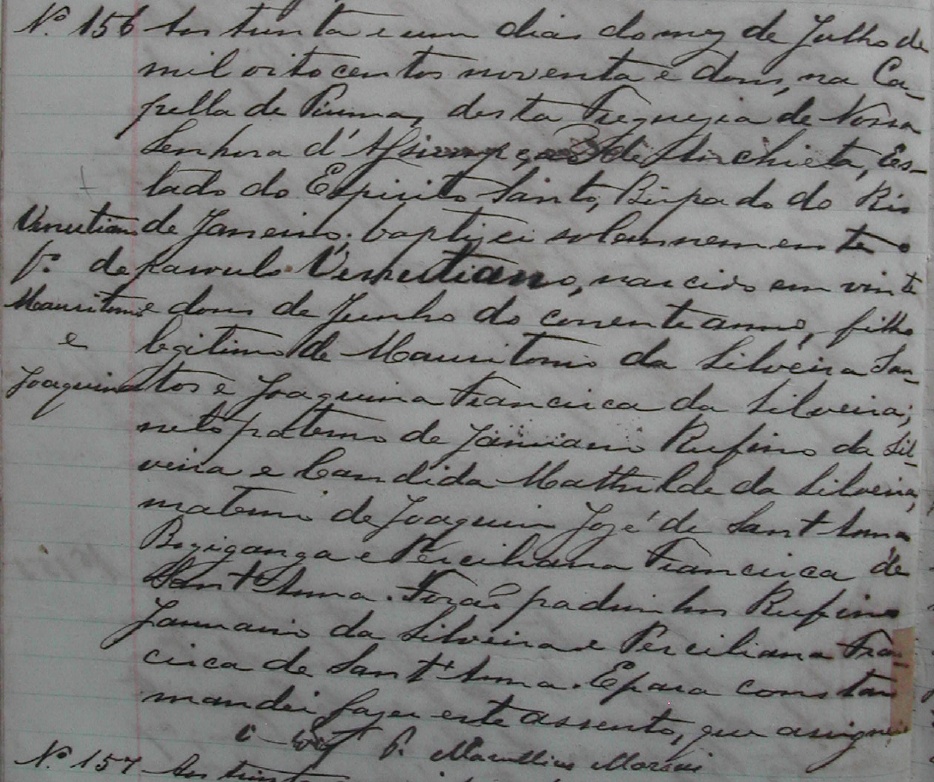 Nº 156 Aos trinta e um dias do mez de Julho de
mil oitocentos noventa e dous, na Ca-
pella de Piuma, desta Freguezia de Nossa
Senhora d'Assumpção de Anchieta, Es-
tado do Espirito Santo, Bispado do Rio
Venutiano de Janeiro; baptizei solemnemente o
fº de parvulo Venutiano, nascido em vinte
Mauritonio e dous de Junho do corrente anno, filho
e legitimo de Mauritonio da Silveira San-
Joaquina tos e Joaquina Francisca da Silveira;
neto paterno de Januario Rufino da Sil-
veira e Candida Mathilde da Silveira,
materno de Joaquim José de Sant'Anna
e Perciliana Francisca de
Sant'Anna. Forão padrinhos Rufino
Januario da Silveira e Perciliana Fran-
cisca de Sant'Anna. E para constar
mandei fazer este assento, que assignei
P. Marcellino
Nº 157 Aos trinta